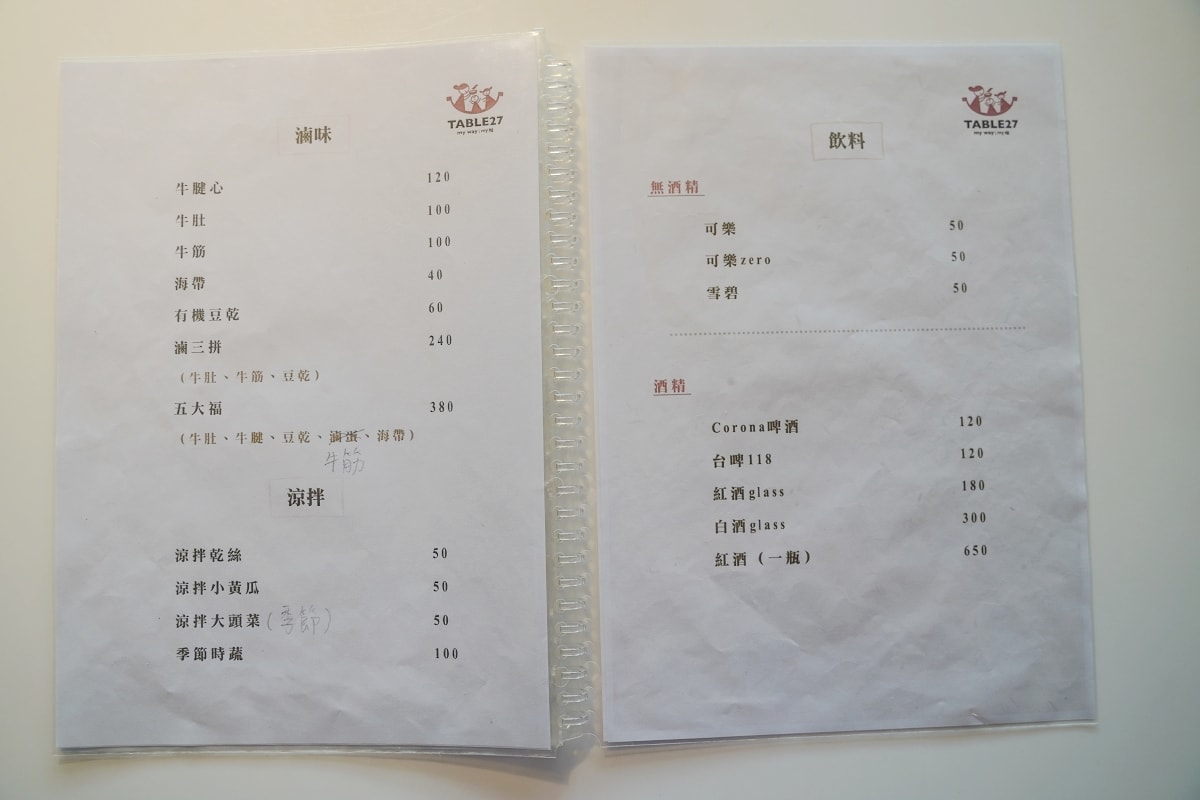 TABLE27
my way : my胃
滷味
牛腱心 120
牛肚 100
牛筋 100
海帶 40
有機豆乾 60
滷三拼 240
(牛肚、牛筋、豆乾)
五大福 380
(牛肚、牛腱、豆乾、滷蛋、海帶)
牛筋
涼拌
涼拌乾絲 50
涼拌小黃瓜 50
涼拌大頭菜(季節) 50
季節時蔬 100
TABLE27
my way : my胃
飲料
無酒精
可樂 50
可樂zero 50
雪碧 50
酒精
Corona啤酒 120
台啤118 120
紅酒glass 180
白酒glass 300
紅酒(一瓶) 650